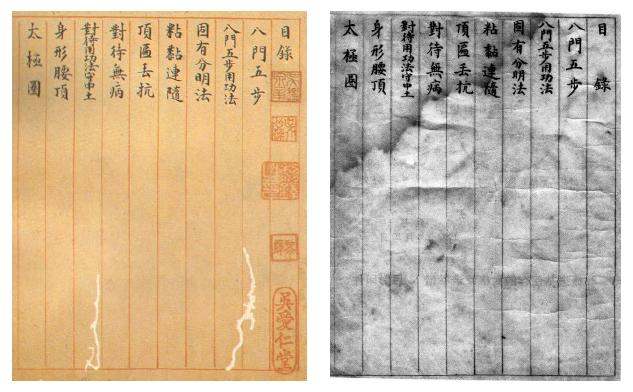 目錄
八門五步
八門五步用功法
固有分明法
粘黏連隨
頂匾丟抗
對待無病
對待用功法守中土
身形腰頂
太極圈
吳愛仁堂
目錄
八門五步
八門五步用功法
固有分明法
粘黏連隨
頂匾丟抗
對待無病
對待用功法守中土
身形腰頂
太極圈